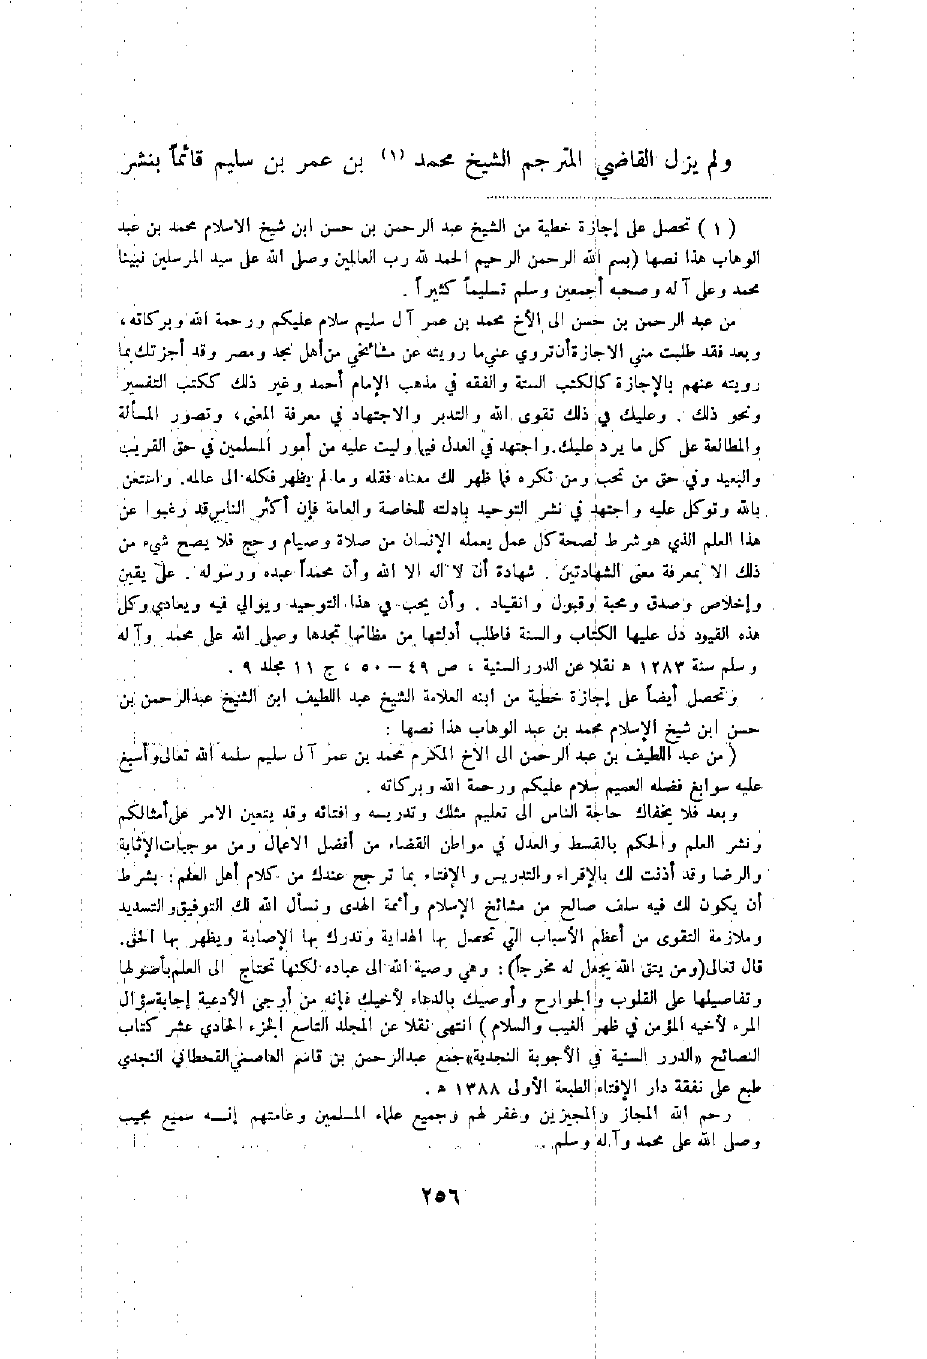 ولم يزل القاضي المترجم الشيخ محمد (١) بن عمر بن سليم قائماً بنشر
( ١ ) تحصل على إجازة خطية من الشيخ عبد الرحمن بن حسن ابن شيخ الاسلام محمد بن عبد
الوهاب هذا نصها (بسم الله الرحمن الرحيم الحمد لله رب العالمين وصلى الله على سيد المرسلين نبينا
محمد وعلى آله وصحبه أجمعين وسلم تسليماً كثيراً .
من عبد الرحمن بن حسن الى الأخ محمد بن عمر آل سليم سلام عليكم ورحمة الله وبركاته،
وبعد فقد طلبت مني الاجازة أن تروي عني ما رويته عن مشائخي من أهل نجد ومصر وقد أجزتك بما
رويته عنهم بالإجازة كالكتب الستة والفقه في مذهب الإمام أحمد وغير ذلك ككتب التفسير
ونحو ذلك . وعليك في ذلك تقوى الله والتدبر والاجتهاد في معرفة المعنى، وتصور المسألة
والمطالعة على كل ما يرد عليك. واجتهد في العدل فيما وليت عليه من أمور المسلمين في حق القريب
والبعيد وفي حق من تحب ومن تكره فما ظهر لك معناه فقله وما لم يظهر فكله الى عالمه. واستعن
بالله وتوكل عليه واجتهد في نشر التوحيد بادلته للخاصة والعامة فإن أكثر الناس قد رغبوا عن
هذا العلم الذي هو شرط لصحة كل عمل يعمله الإنسان من صلاة وصيام وحج فلا يصح شيء من
ذلك الا بمعرفة معنى الشهادتين . شهادة أن لا اله الا الله وأن محمداً عبده ورسوله . على يقين
وإخلاص وصدق ومحبة وقبول وانقياد . وأن يحب في هذا التوحيد ويوالي فيه ويعادي وكل
هذه القيود دل عليها الكتاب والسنة فاطلب أدلتها من مظانها تجدها وصلى الله على محمد وآله
وسلم سنة ١٢٨٣ ه نقلا عن الدرر السنية ، ص ٤٩ – ٥٠ ، ج ١١ مجلد ٩ .
وتحصل أيضاً على إجازة خطية من ابنه العلامة الشيخ عبد اللطيف ابن الشيخ عبدالرحمن بن
حسن ابن شيخ الإسلام محمد بن عبد الوهاب هذا نصها :
( من عبد اللطيف بن عبد الرحمن الى الاخ المكرم محمد بن عمر آل سليم سلمه الله تعالى وأسبغ
عليه سوابغ فضله العميم سلام عليكم ورحمة الله وبركاته .
وبعد فلا يخفاك حاجة الناس الى تعليم مثلك وتدريسه وافتائه وقد يتعين الامر على أمثالكم
ونشر العلم والحكم بالقسط والعدل في مواطن القضاء من أفضل الاعمال ومن موجبات الإثابة
والرضا وقد أذنت لك بالإقراء والتدريس والإفتاء بما ترجح عندك من كلام أهل العلم: بشرط
أن يكون لك فيه سلف صالح من مشائخ الإسلام وأئمة الهدى ونسأل الله لك التوفيق والتسديد
وملازمة التقوى من أعظم الأسباب التي تحصل بها الهداية وتدرك بها الإصابة ويظهر بها الحق.
قال تعالى (ومن يتق الله يجعل له مخرجاً): وهي وصية الله الى عباده لكنها تحتاج الى العلم بأصولها
وتفاصيلها على القلوب والجوارح وأوصيك بالدعاء لأخيك فإنه من أرجى الأدعية إجابة سؤال
المرء لأخيه المؤمن في ظهر الغيب والسلام ) انتهى نقلا عن المجلد التاسع الجزء الحادي عشر كتاب
النصائح «الدرر السنية في الأجوبة النجدية» جمع عبدالرحمن بن قاسم العاصمي القحطاني النجدي
طبع على نفقة دار الإفتاء الطبعة الأولى ١٣٨٨ ه .
رحم الله المجاز والمجيزين وغفر لهم وجميع علماء المسلمين وعامتهم إنه سميع مجيب
وصلى الله على محمد وآله وسلم .
٢٥٦